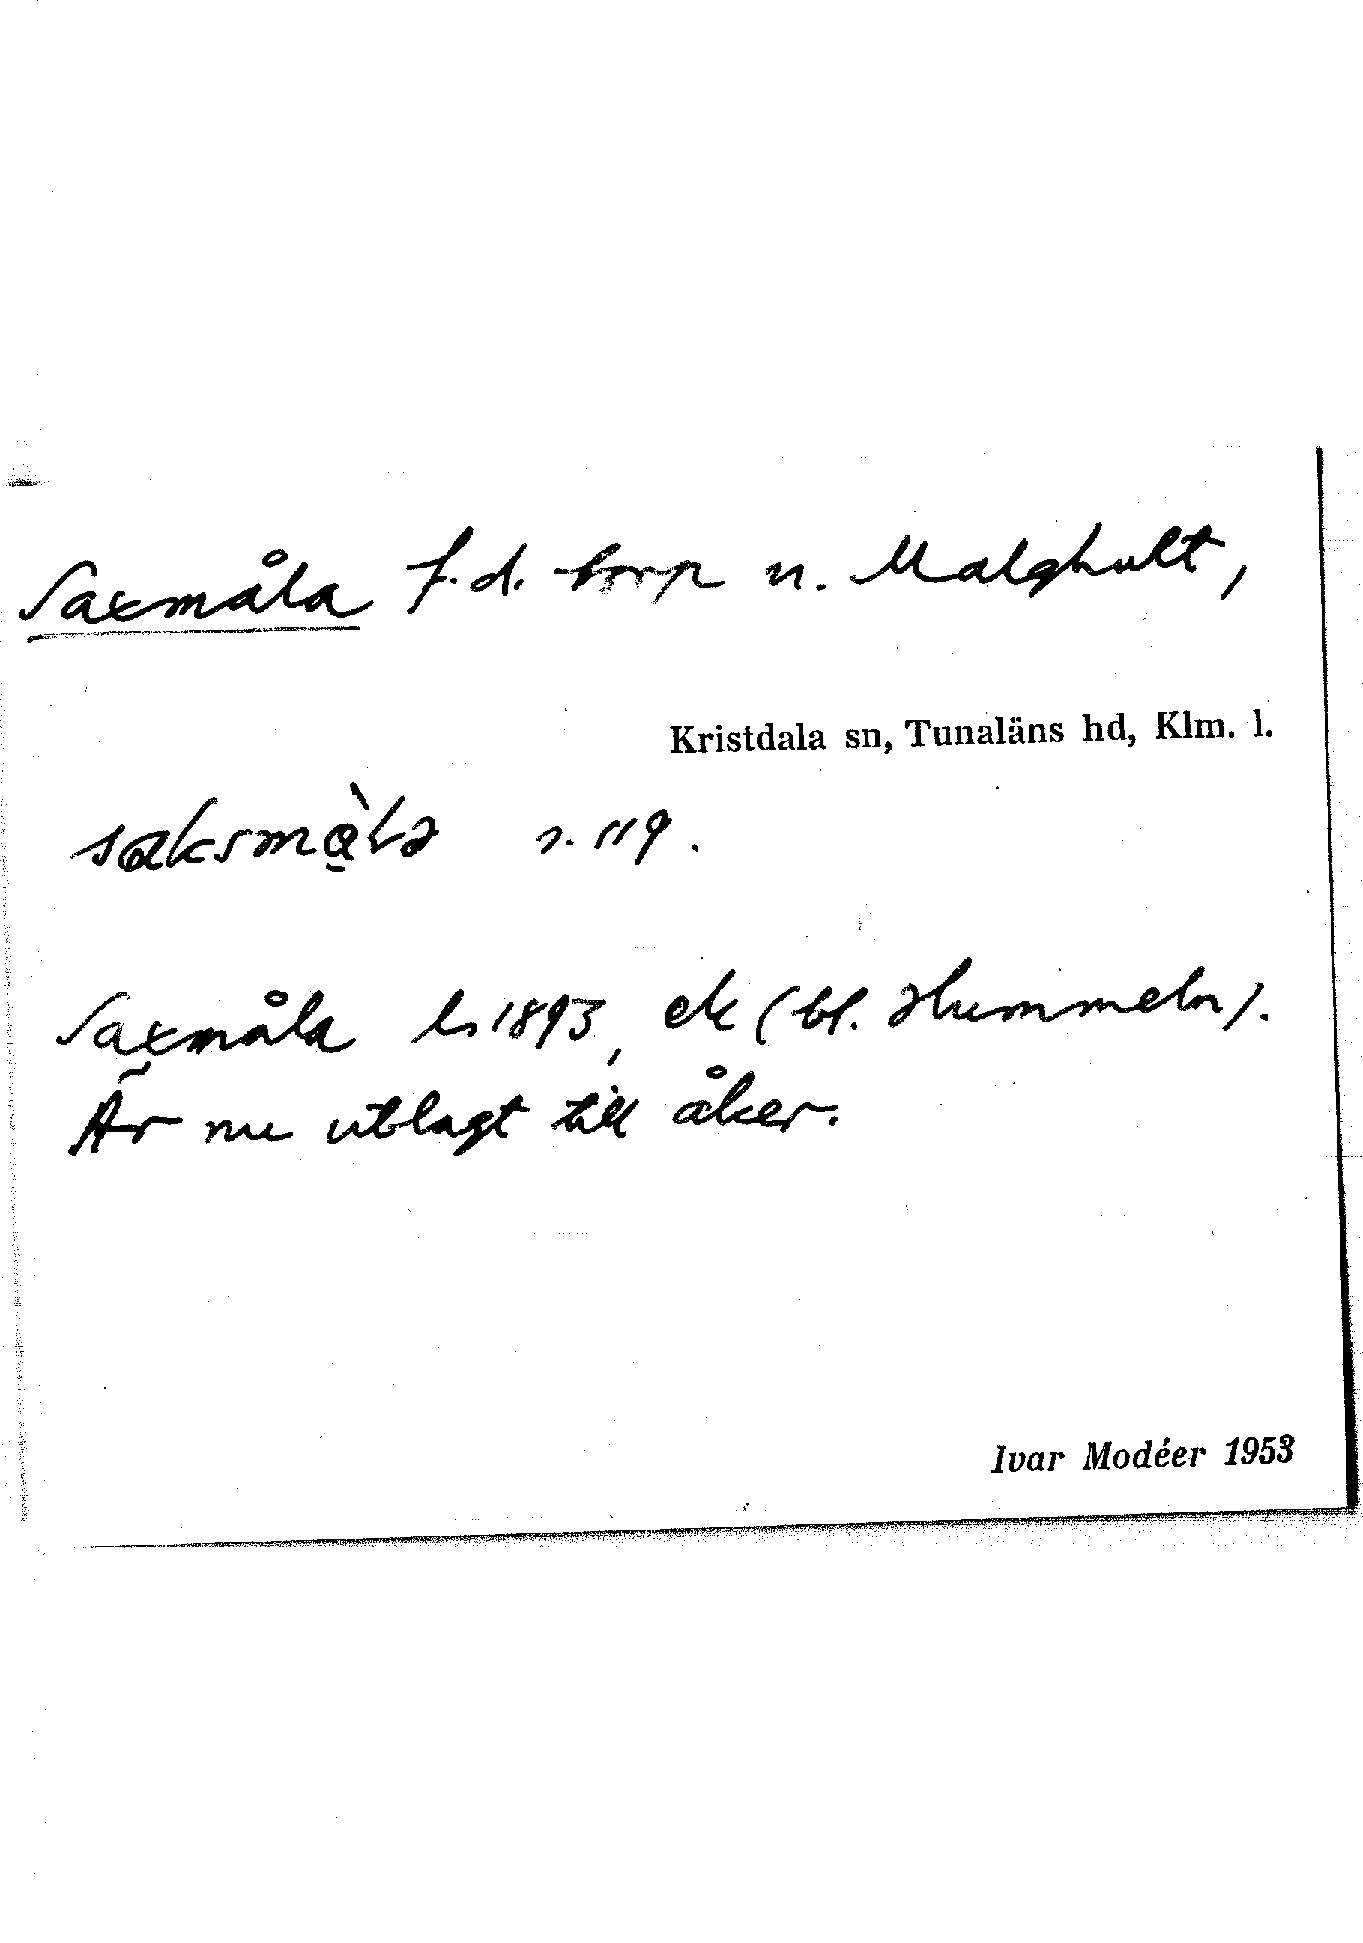 Saxmåla f.d. torp u. Malghult,
Kristdala sn, Tunaläns hd, Klm. l.
s. 119.
Saxmåla ls 1893, ek (bl. Hummeln).
Är nu utlagt till åker.
Ivar Modéer 1953